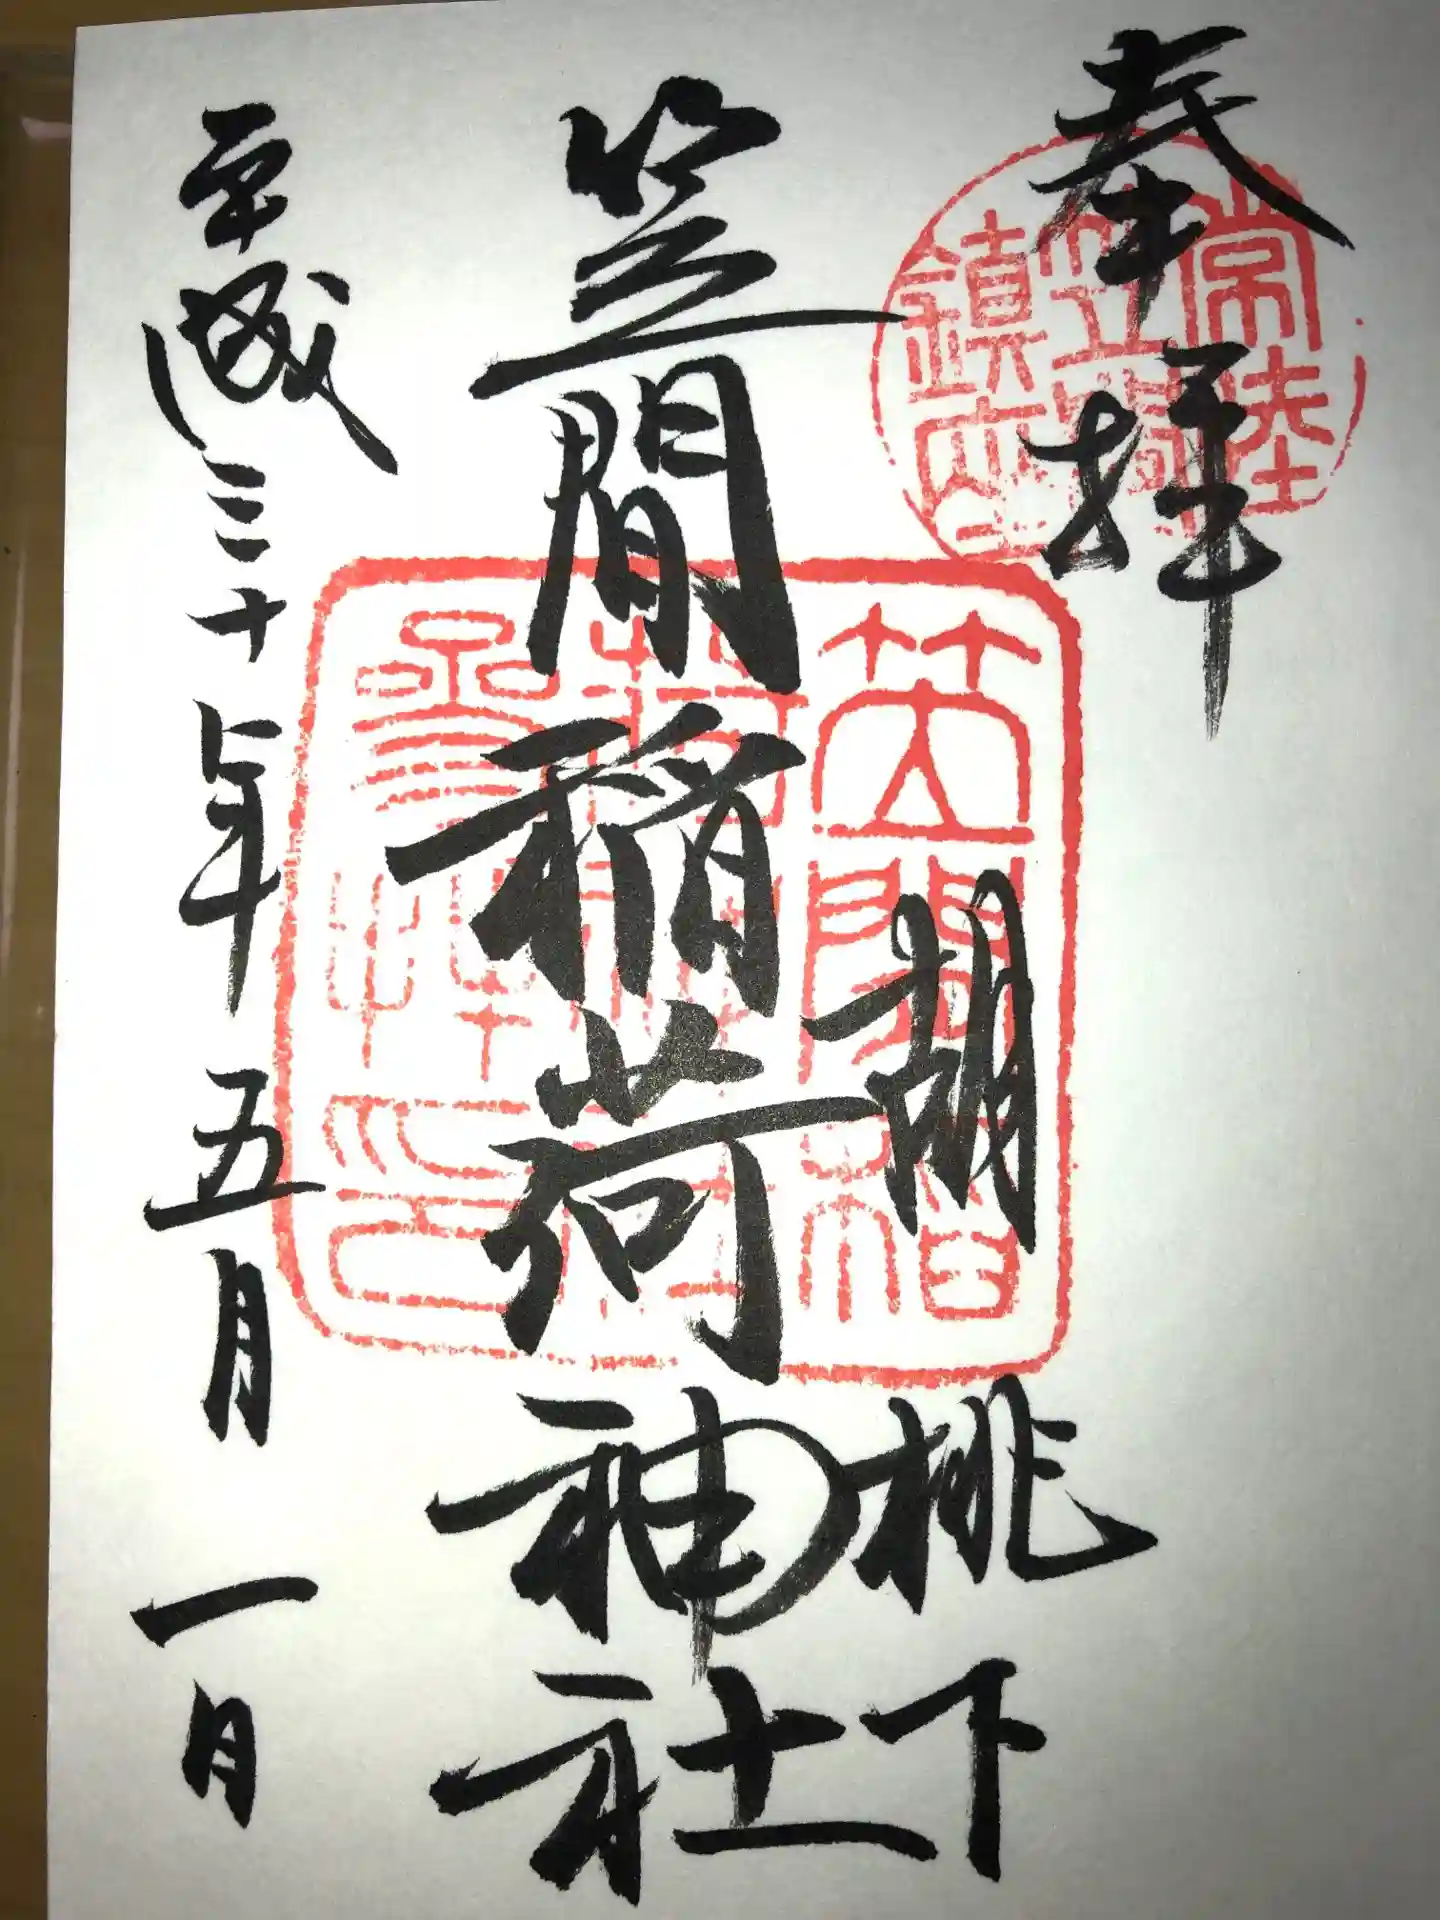 奉拝
常陸
笠間
鎮座
胡桃下
笠間稲荷神社
笠間稲
荷神社
參拜印
平成三十年五月一日